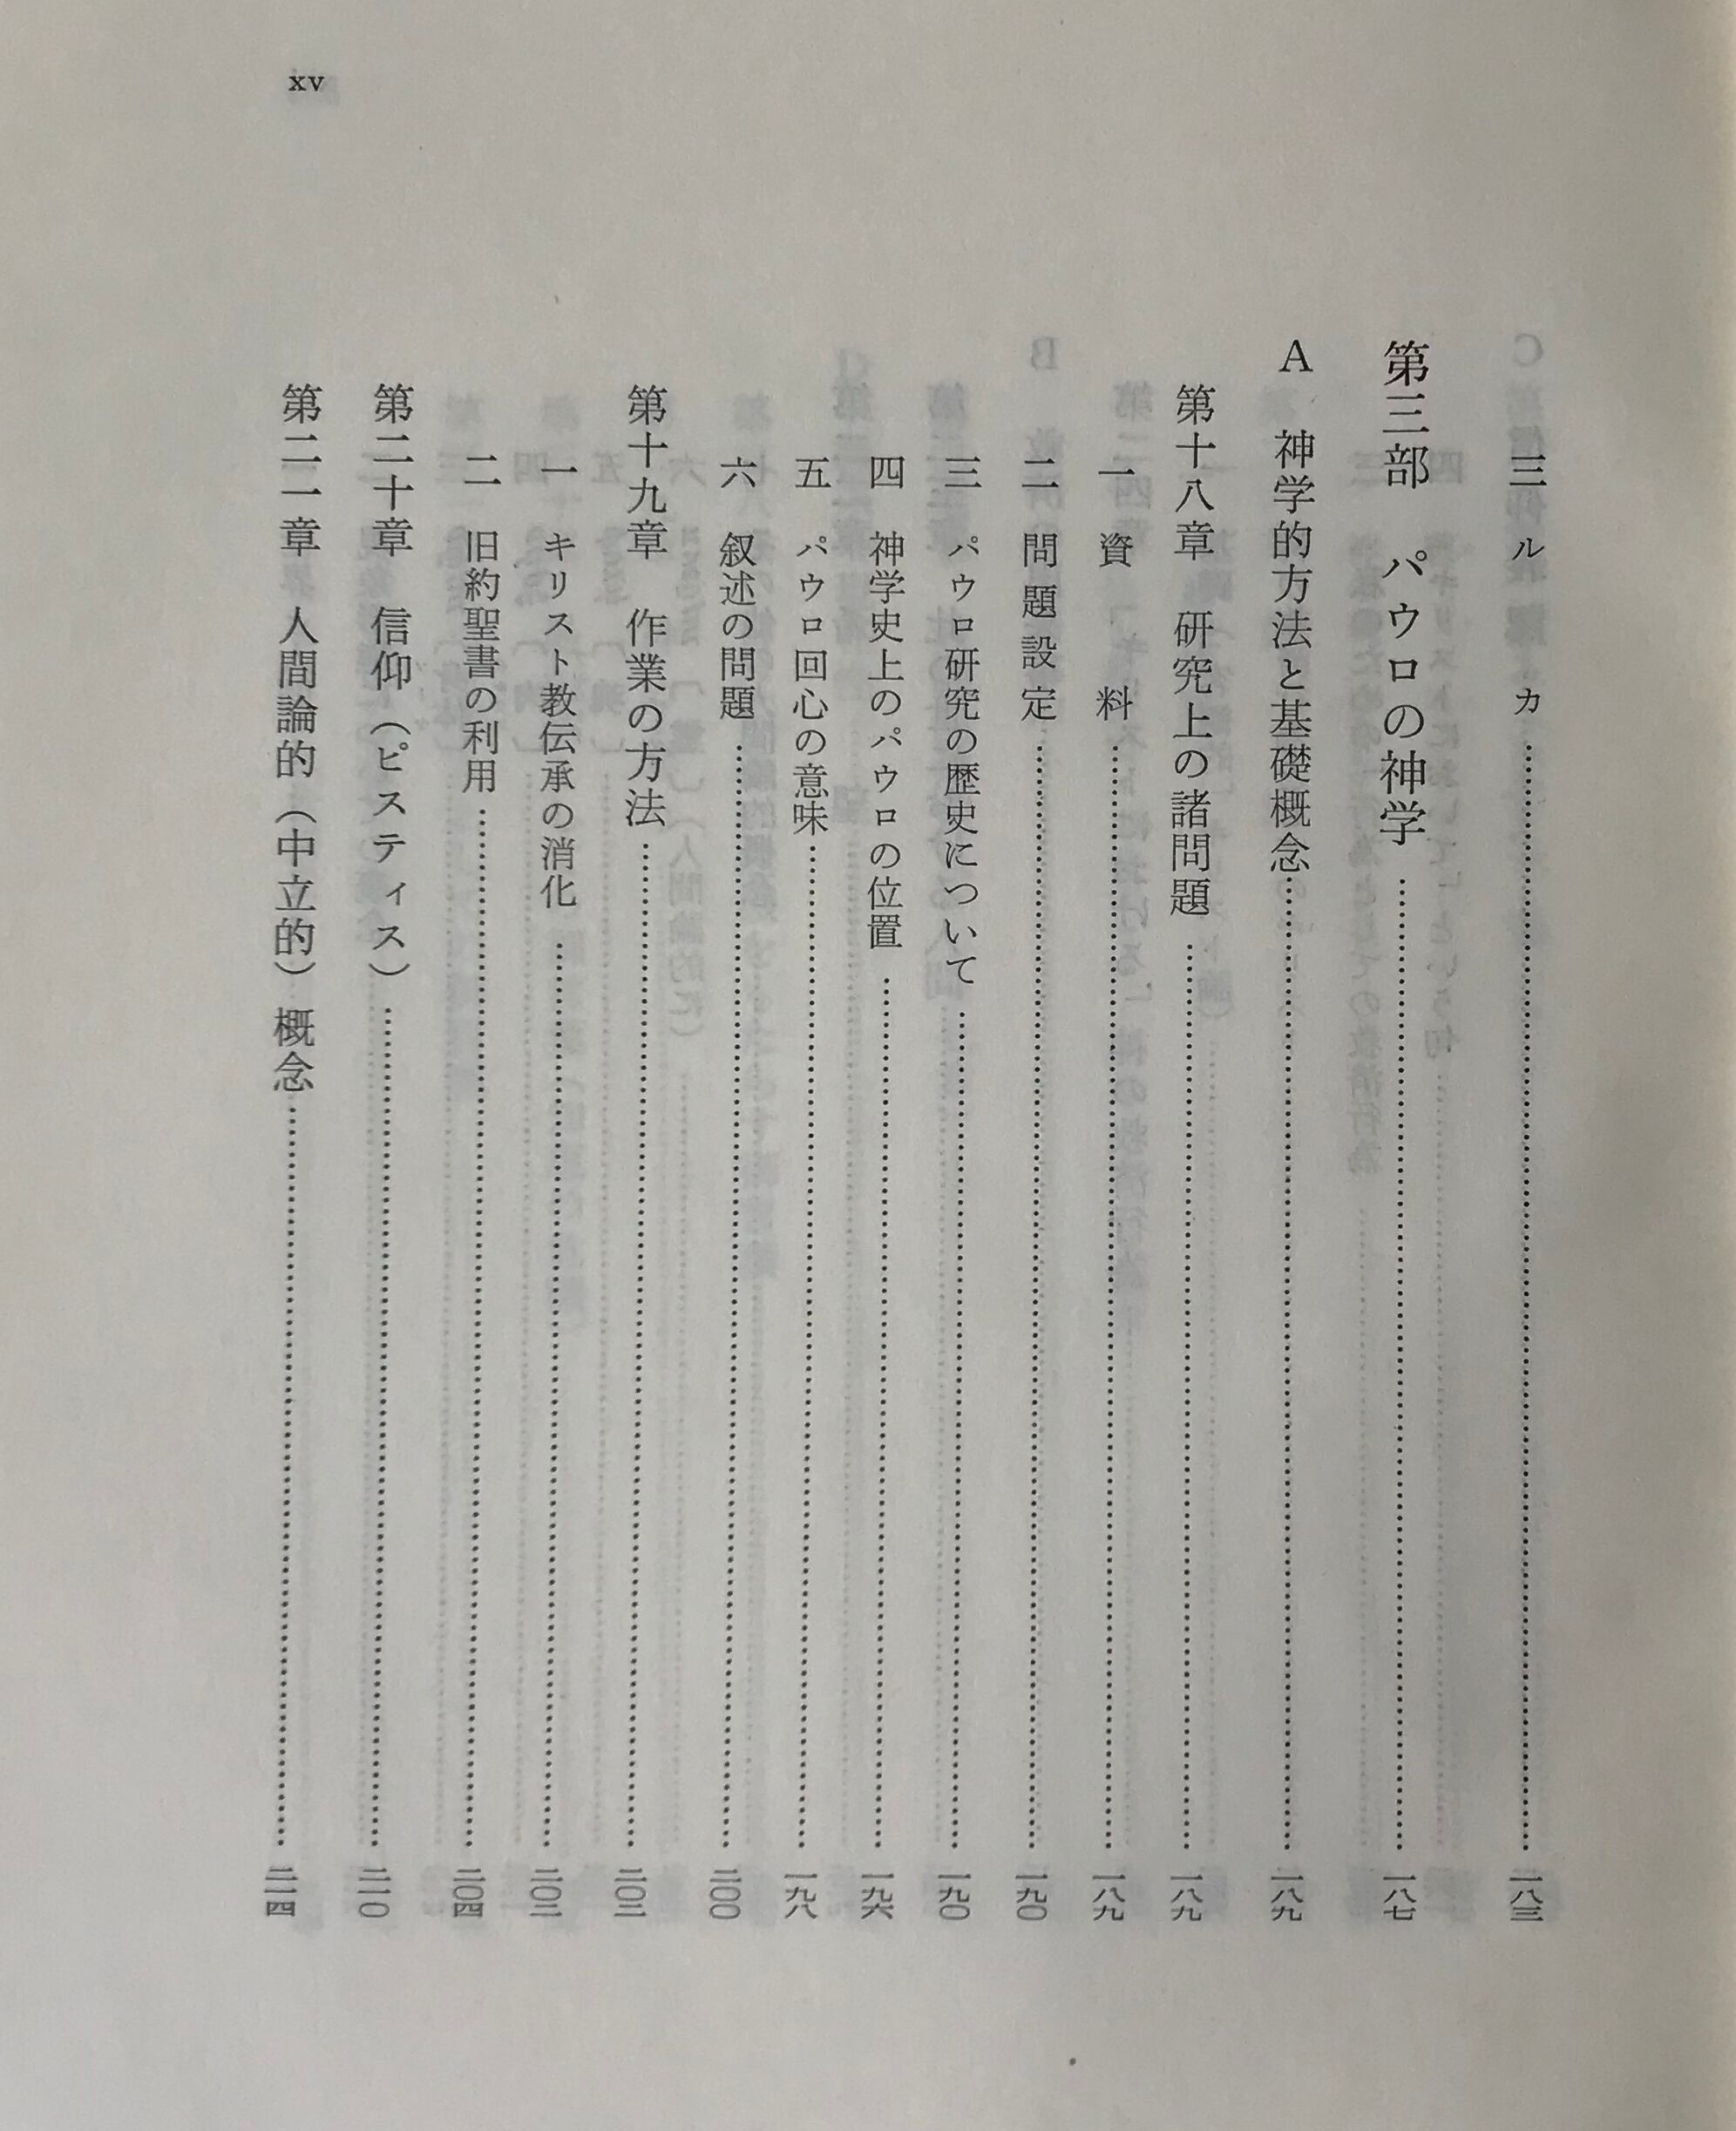 三　ルカ……一八三
第三部　パウロの神学……一八七
A　神学的方法と基礎概念……一八九
第十八章　研究上の諸問題……一八九
一　資料……一八九
二　問題設定……一九〇
三　パウロ研究の歴史について……一九〇
四　神学史上のパウロの位置……一九六
五　パウロ回心の意味……一九八
六　叙述の問題……二〇〇
第十九章　作業の方法……二〇三
一　キリスト教伝承の消化……二〇三
二　旧約聖書の利用……二〇四
第二十章　信仰（ピスティス）……二一〇
第二一章　人間論的（中立的）概念……二一四
xv